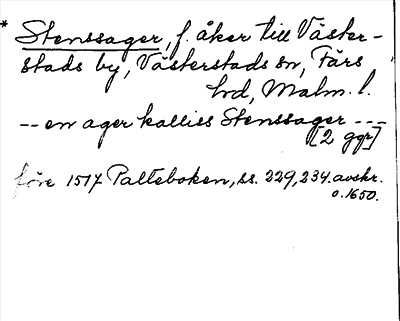 * Stenssager, f. åker till Väster-
stads by, Västerstads sn, Färs
hrd, Malm. l.
-- en ager kalliss Stenssager ---
[2 ggr]
före 1517 Palteboken, ss. 229, 234. avskr.
o. 1650.